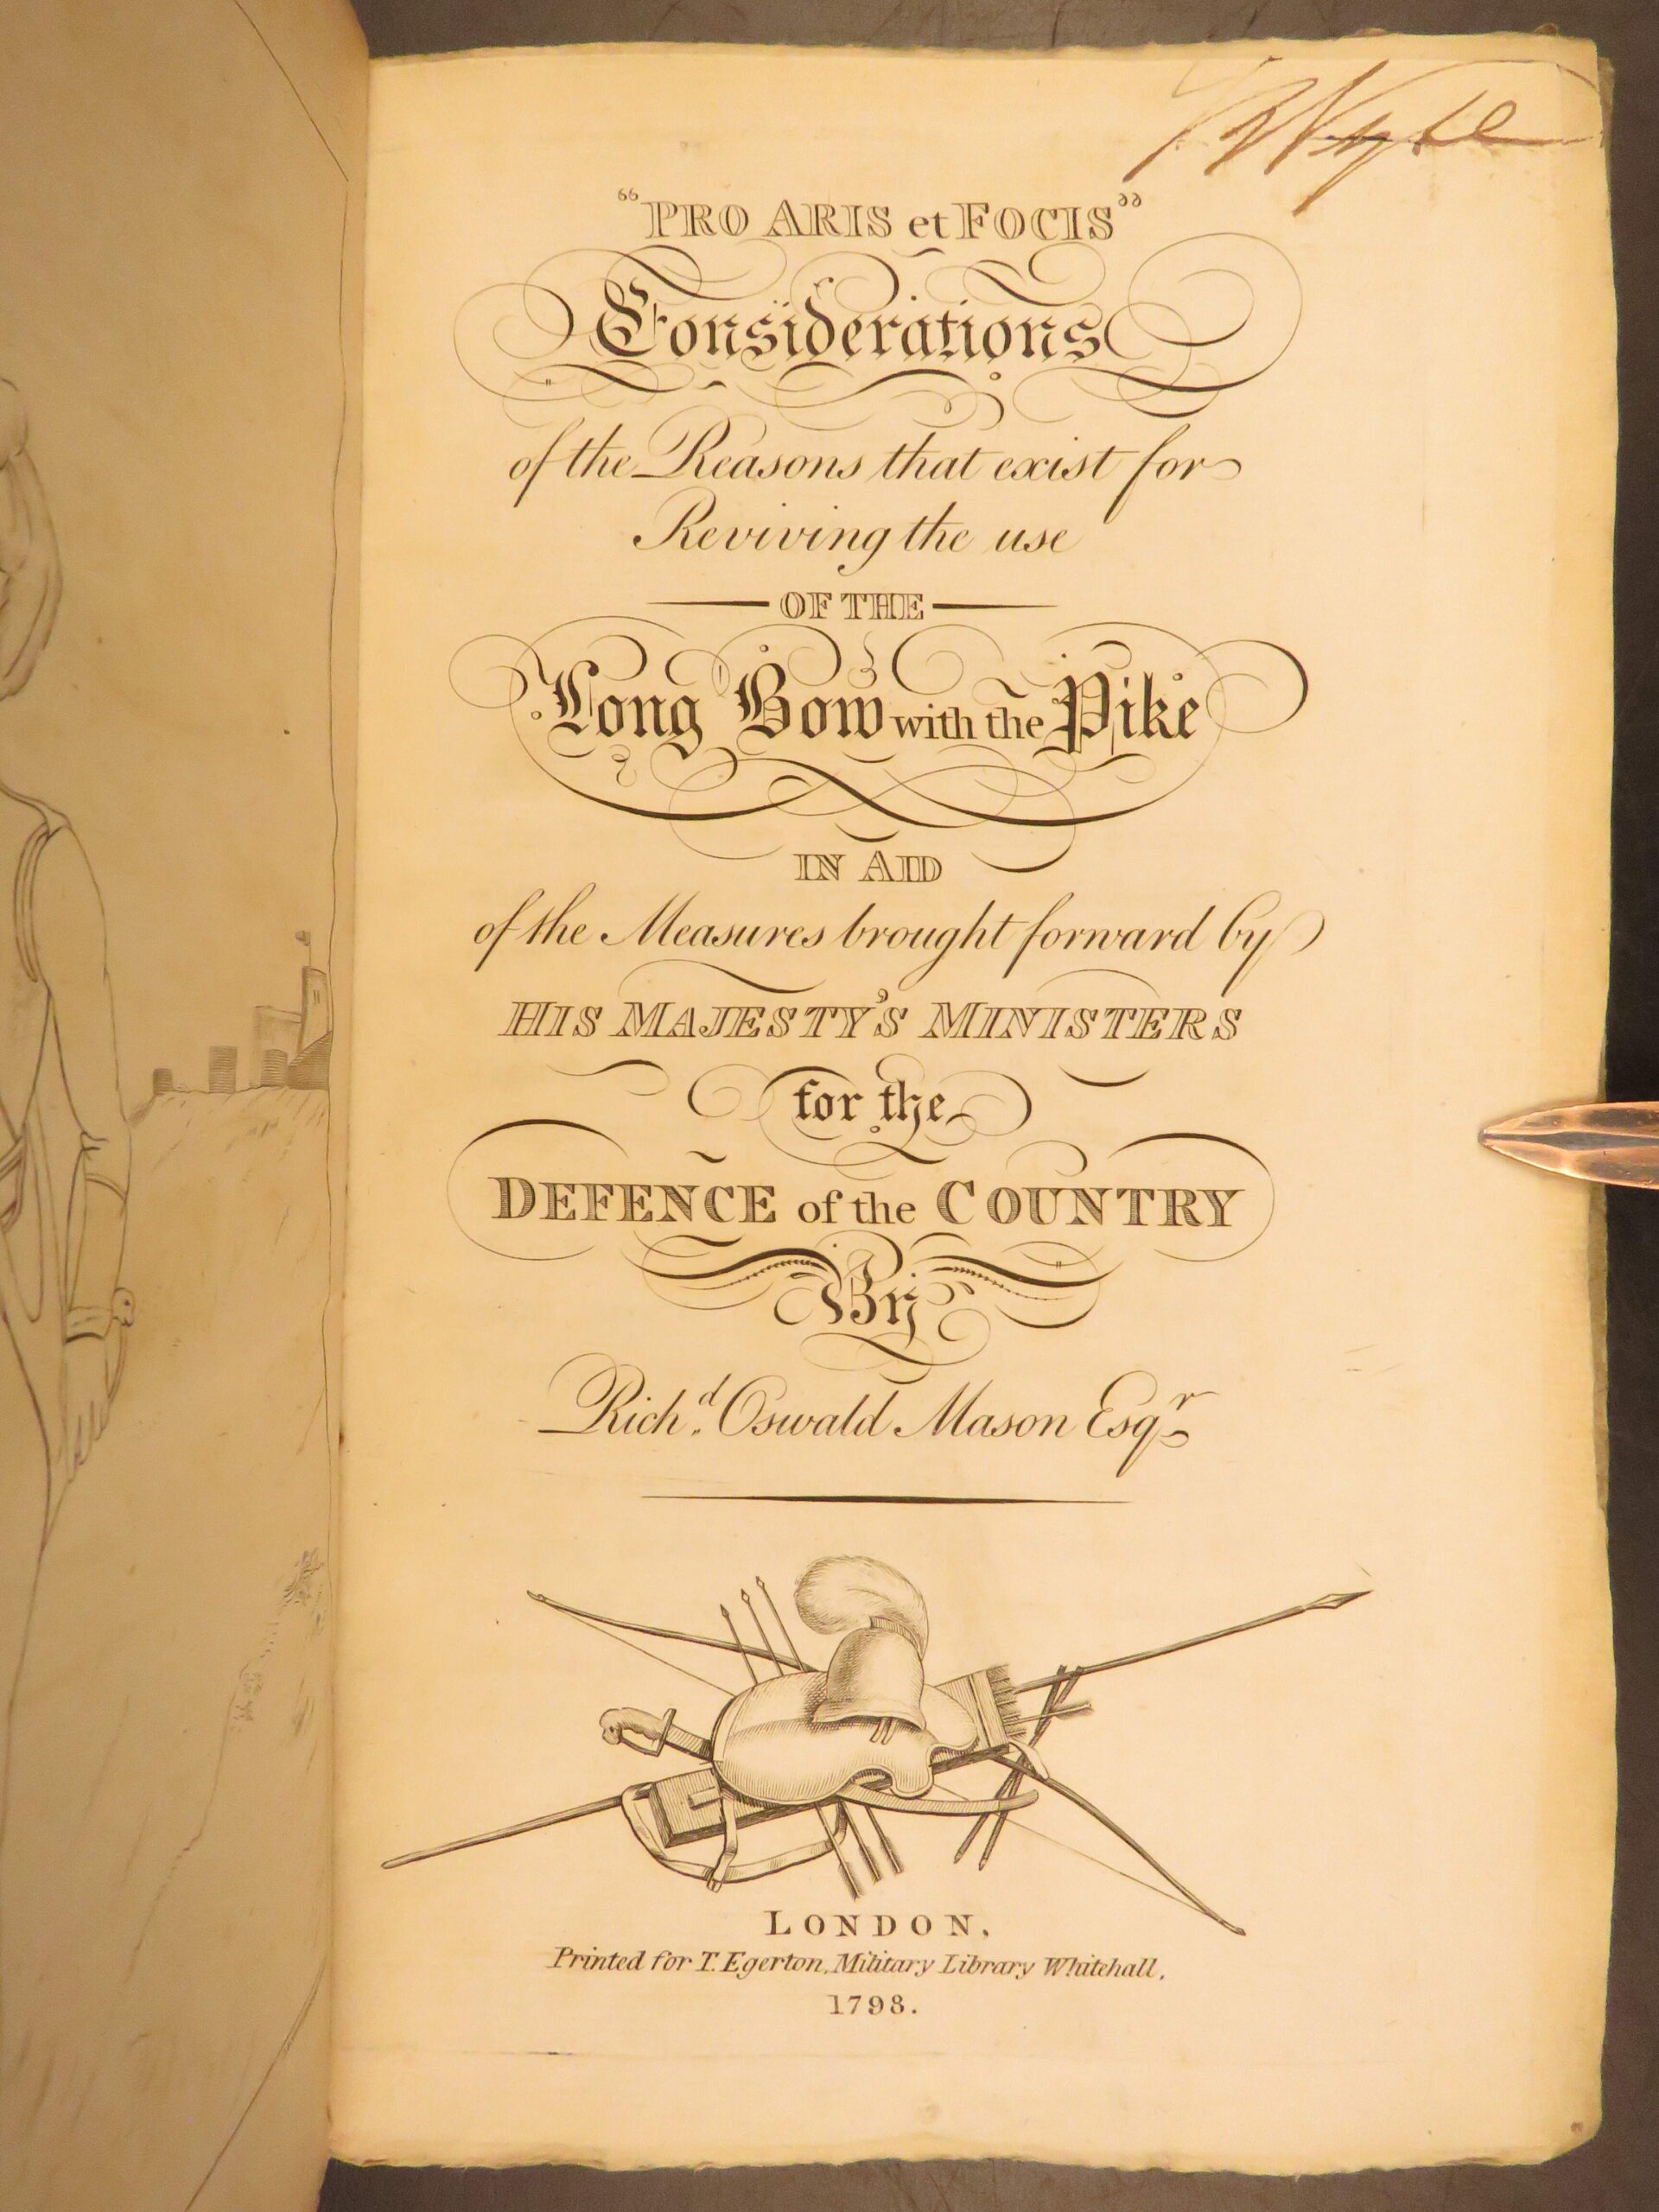 "PRO ARIS et FOCIS"
Considerations
of the Reasons that exist for
Reviving the use
OF THE
Long Bow with the Pike
IN AID
of the Measures brought forward by
HIS MAJESTY'S MINISTERS
for the
DEFENCE of the COUNTRY
By
Rich.d Oswald Mason Esqr
LONDON,
Printed for T. Egerton, Military Library Whitehall.
1798.